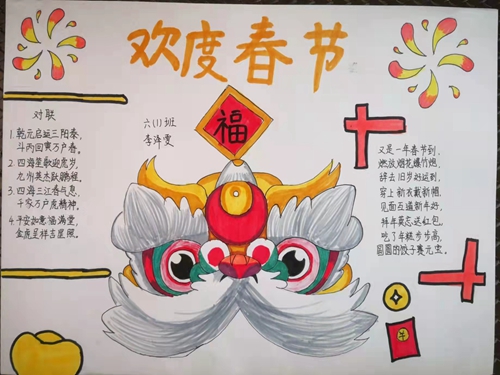 欢度春节
福
六(1)班
李泽雯
对联
1.乾元启运三阳泰,
斗丙回寅万户春。
2.四海笙歌迎虎岁,
九州英杰跃鹏程。
3.四海三江春气息,
千家万户虎精神。
4.平安如意福满堂,
金虎呈祥吉星照。
又是一年春节到,
燃放烟花爆竹炮,
辞去旧岁好运到,
穿上新衣戴新帽,
见面互道新年好,
拜年莫忘送红包,
吃了年糕步步高,
圆圆的饺子赛元宝。